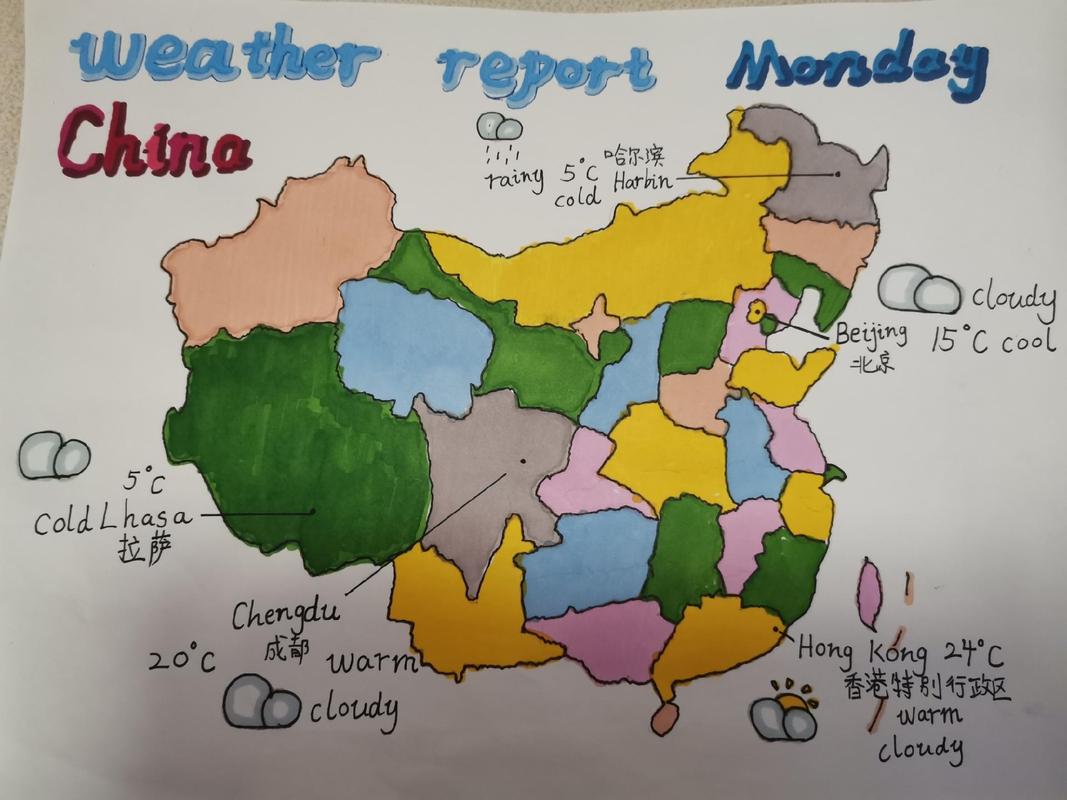 weather report Monday
China
rainy 5°C
cold
哈尔滨
Harbin
cloudy
15°C cool
Beijing
北京
5°C
cold Lhasa
拉萨
Chengdu
成都
20°C
warm
cloudy
Hong Kong 24°C
香港特别行政区
warm
cloudy